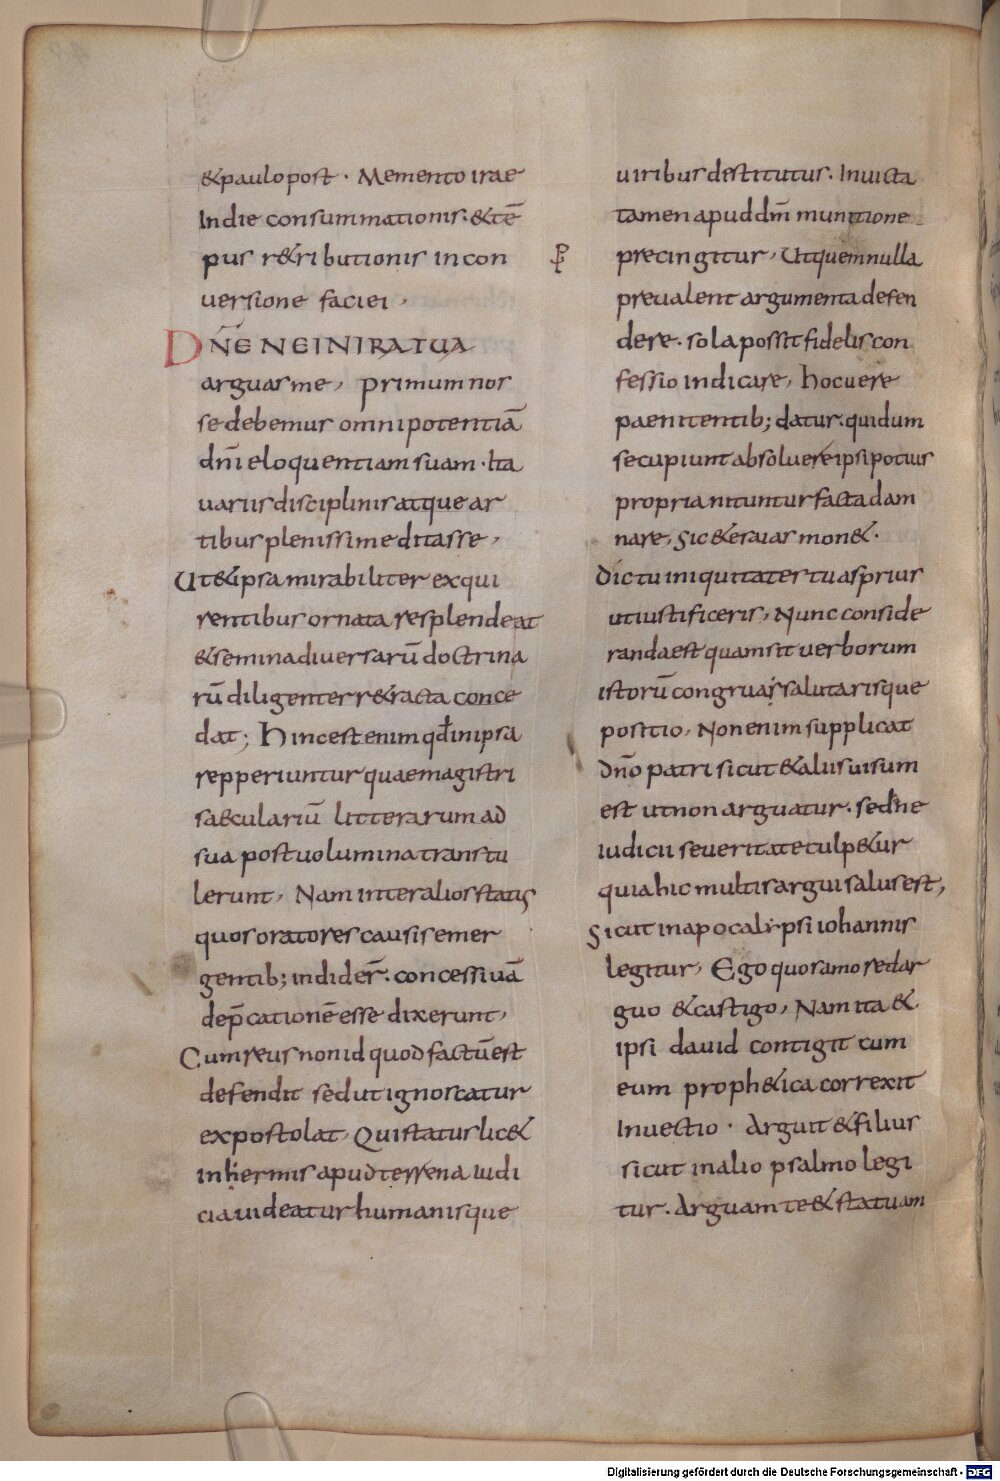 &paulopost · Memento irae
In die consummationis · & tē
pus r&ributionis in con
uersione faciei ,
DN̄E NE IN IRA TUA
arguas me , primum nos
se debemus omnipotentiā
dn̄i eloquentiam suam · ita
uariis disciplinis atque ar
tibus plenissime ditasse ,
Ut & ipsa mirabiliter exqui
rentibus ornata resplendeat
& semina diuersarū doctrina
rū diligenter r&racta conce
dat ; Hinc est enim qđ in ipsa
repperiuntur quae magistri
saeculariū litterarum ad
sua post uolumina transtu
lerunt , Nam inter alios status
quos oratores causis emer
gentib; indider̄ · concessiuā
dep̄cationē esse dixerunt ,
Cum reus non id quod factū est
defendit sed ut ignoscatur
expostolat , Qui status lic&
inhermis apud terrena iudi
cia uideatur humanisque
uiribus destitutus · Inuicta
tamen apud dm̄ munitione
precingitur , Ut quem nulla
preualent argumenta defen
dere · sola possit fidelis con
fessio indicare , hoc uere
paenitentib; datur · qui dum
se cupiunt absoluere ipsi potius
propria nituntur facta dam
nare , Sic & esaias mon& ·
dic tu iniquitates tuas prius
ut iustificeris , Nunc conside
randa est quam sit uerborum
istorū congrua salutarisque
positio , Non enim supplicat
dn̄o patri sicut & aliis uisum
est ut non arguatur · sed ne
iudicii seueritate culp&ur
quia hic multis argui salus est ,
Sicut in apocalipsi iohannis
legitur , Ego quos amo redar
guo & castigo , Nam ita &
ipsi dauid contigit cum
eum proph&ica correxit
Inuectio · Arguit & filius
sicut in alio psalmo legi
tur · Arguam te & statuam
Digitalisierung gefördert durch die Deutsche Forschungsgemeinschaft - DFG